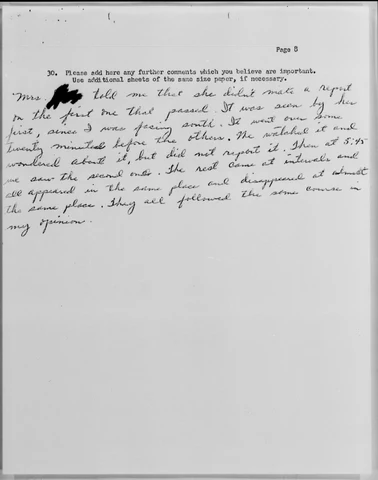 Page 8
30. Please add here any further comments which you believe are important.
Use additional sheets of the same size paper, if necessary.
"Mrs. told me that she didn't make a report
on the first one that passed. It was seen by her
first, since I was facing south. It went over some
twenty minutes before the others. We watched it and
wondered about it, but did not report it. Then at 5:45
we saw the second one. The rest came at intervals and
all appeared in the same place and disappeared at almost
the same place. They all followed the same course in
my opinion.